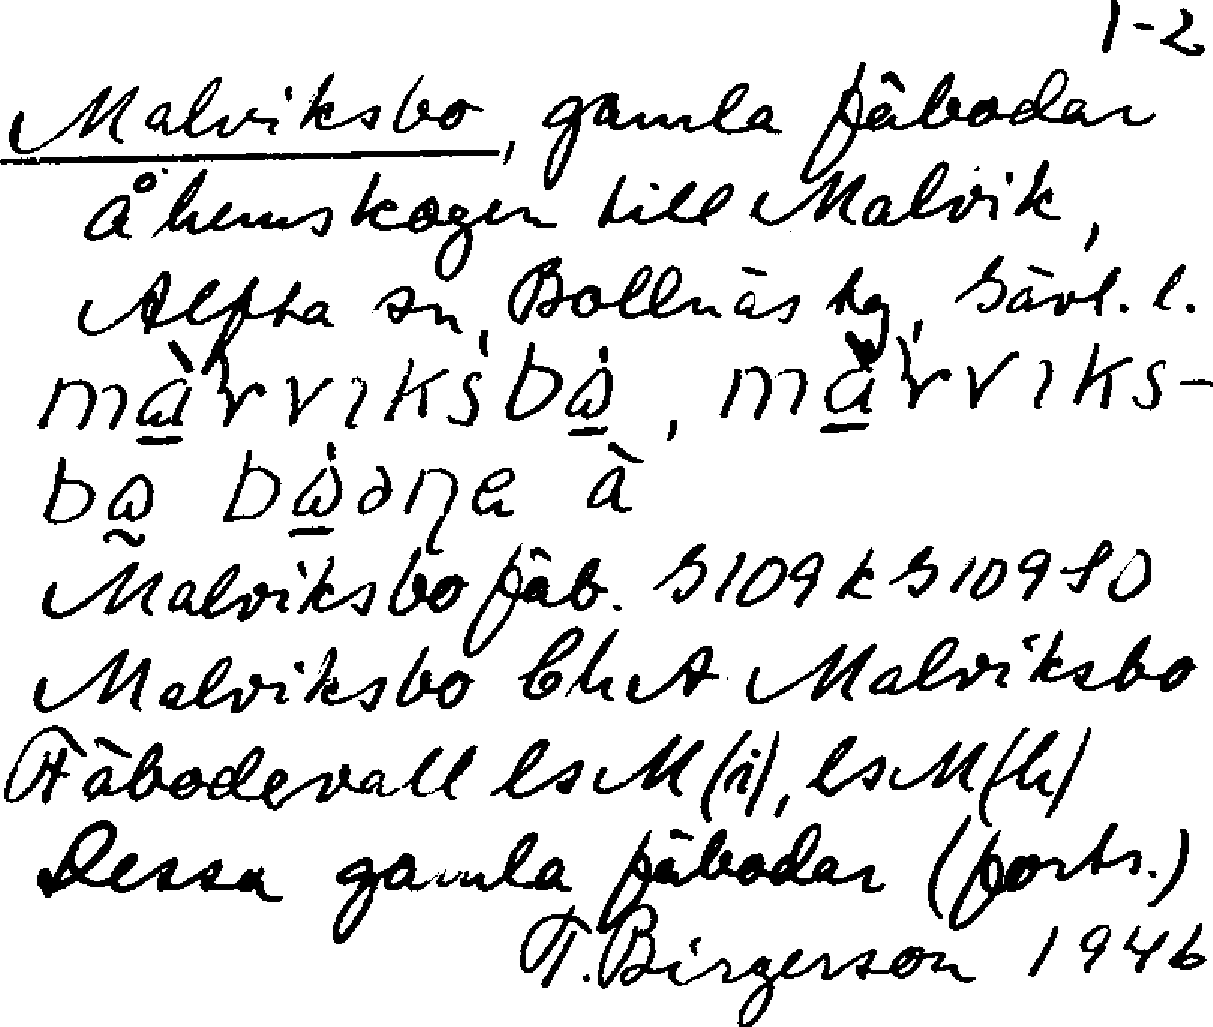 1-2
Malviksbo, gamla fäbodar
å hemskogen till Malvik,
Alfta sn, Bollnäs tg, Gävl. l.
Malviksbo fäb. G109k G109 SO
Malviksbo Malviksbo
Fäbodevall LsM(i), LsM(h)
Dessa gamla fäbodar (forts.)
T. Birgerson 1946